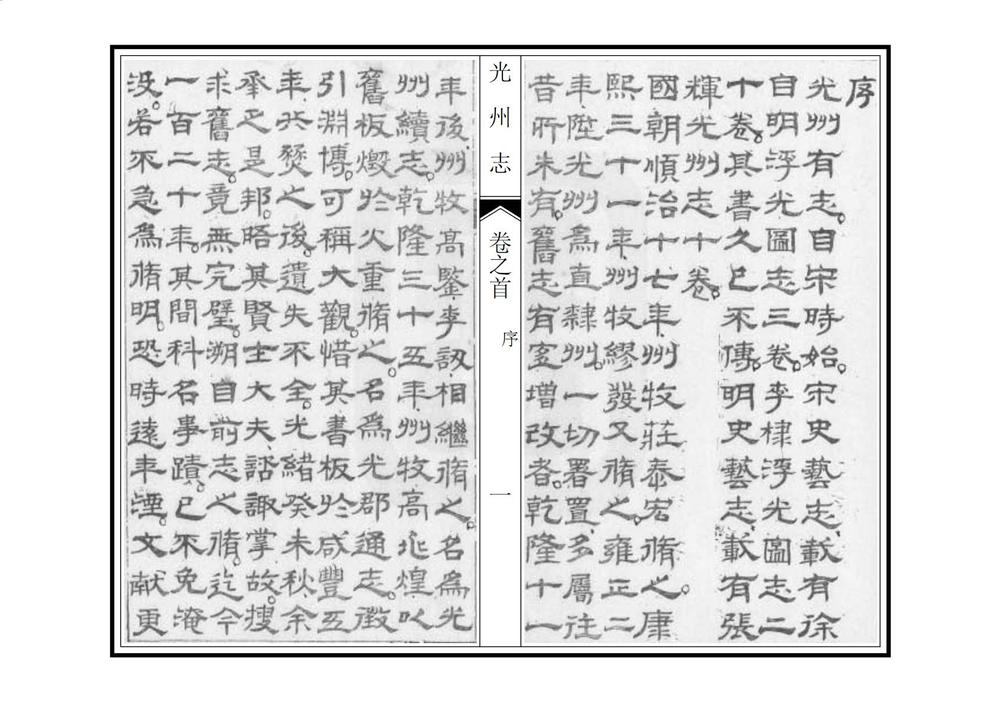 序
光州有志。自宋時始。宋史藝志。載有徐
自明浮光圖志三卷。李棣浮光圖志二
十卷。其書久已不傳。明史藝志。載有張
輝光州志十卷。
國朝順治十七年。州牧莊泰宏脩之。康
熙三十一年。州牧繆發又脩之。雍正二
年陞光州為直隸州。一切署置。多屬往
昔所未有。舊志有宜增改者。乾隆十一
光州志
卷之首
序
一
年後州牧高鑒李訒相繼脩之。名為光
州續志。乾隆三十五年州牧高兆煌以
舊板燬於火重脩之。名為光郡通志。徵
引淵博。可稱大觀。惜其書板於咸豐五
年兵燹之後。遺失不全。光緒癸未秋余
承乏是邦。晤其賢士大夫。諮諏掌故。搜
求舊志。竟無完璧。溯自前志之脩。迄今
一百二十年。其間科名事蹟。已不免淹
沒。若不急為脩明。恐時遠年湮。文獻更